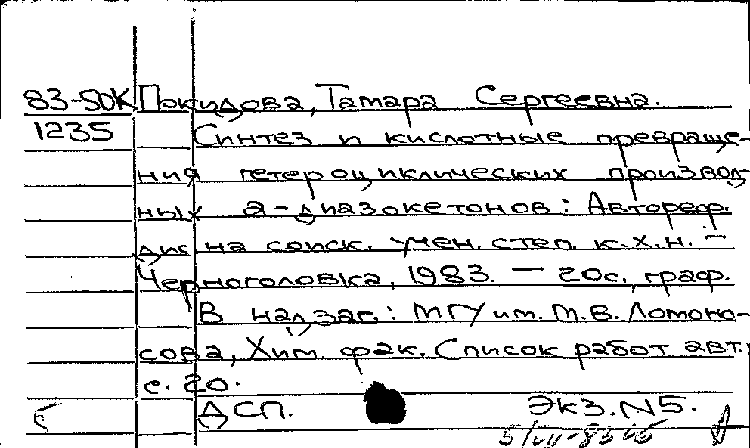 83-50К Покидова, Тамара Сергеевна.
1235 Синтез и кислотные превраще-
ния гетероциклических производ-
ных α-диазокетонов: Автореф.
дис на соиск. учен. степ. к.х.н. –
Черноголовка, 1983. – 20с., граф.
В надзаг.: МГУ им. М.В. Ломоно-
сова, Хим. фак. Список работ авт.:
с. 20.
ДСП. Экз. N5.